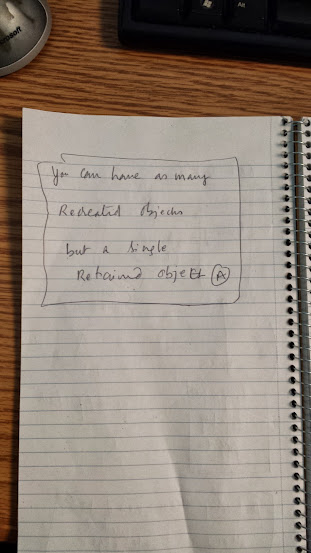 You can have as many
Repeated objects
but a single
Retained object A
Alt